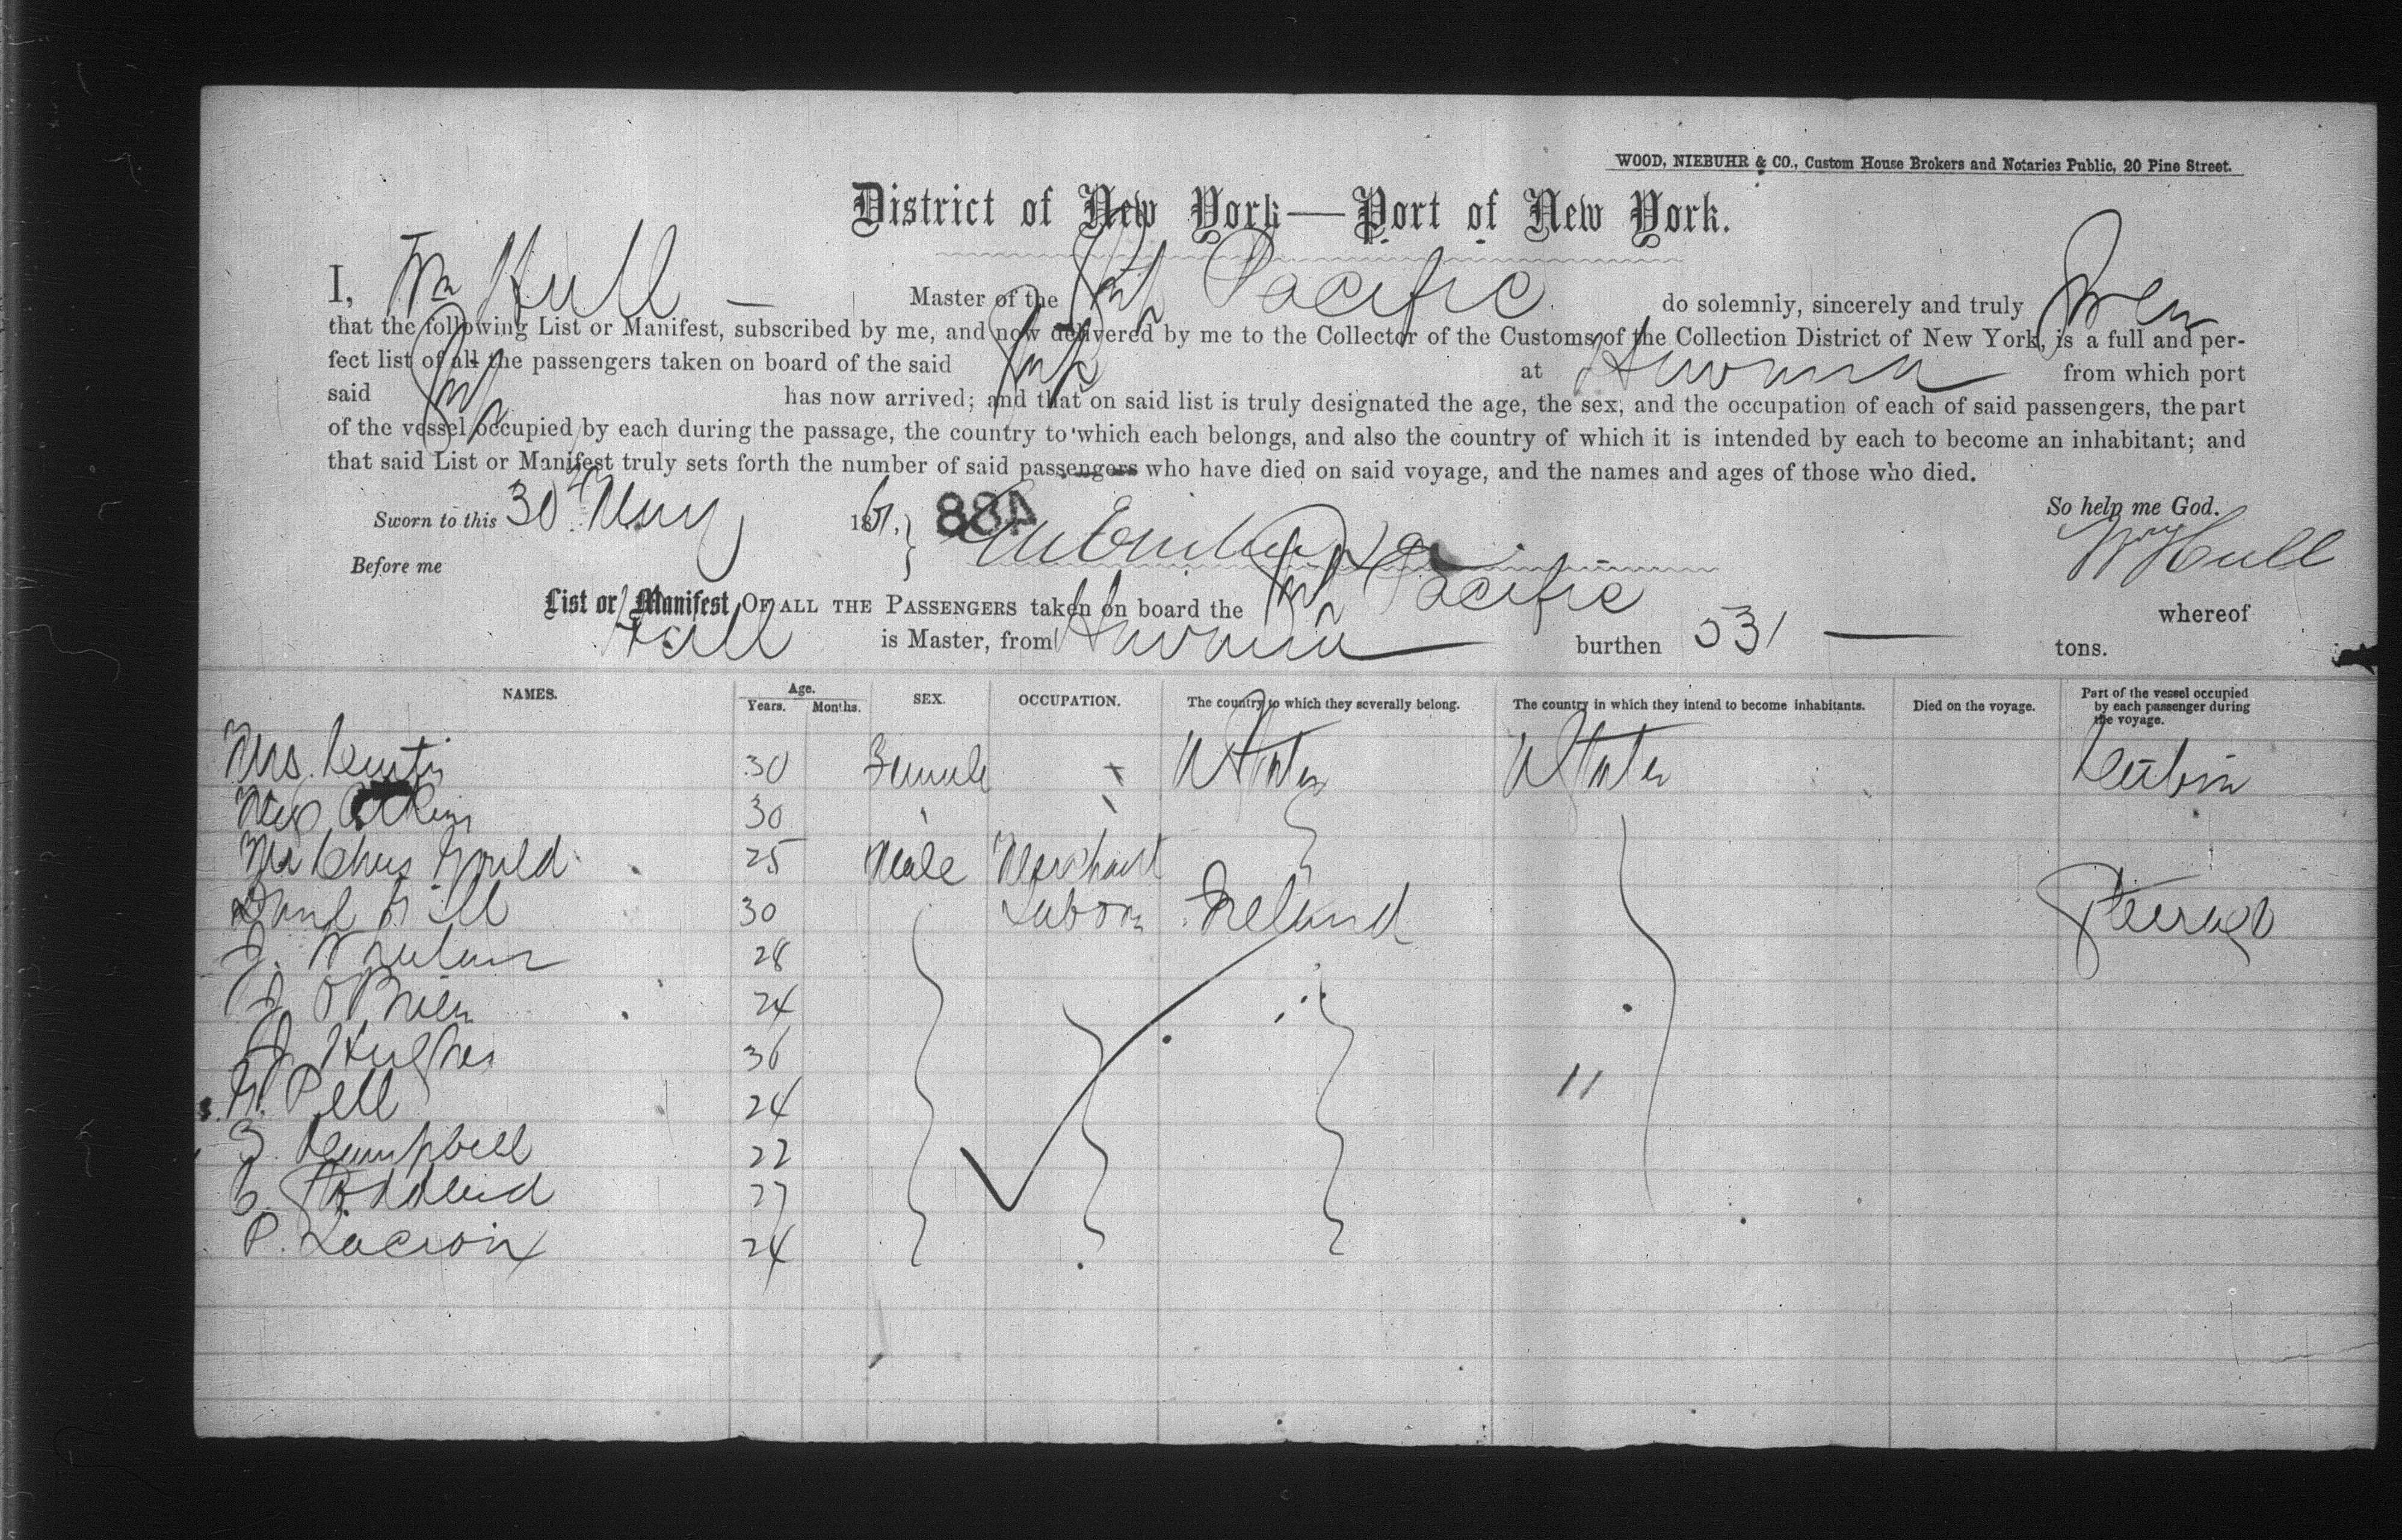 WOOD, NIEBUHR & CO., Custom House Brokers and Notaries Public, 20 Pine Street.
District of New York—Port of New York.
I, Wm Hull — Master of the Ship Pacific do solemnly, sincerely and truly Swear
that the following List or Manifest, subscribed by me, and now delivered by me to the Collector of the Customs of the Collection District of New York, is a full and per-
fect list of all the passengers taken on board of the said Ship at Havana from which port
said Ship has now arrived; and that on said list is truly designated the age, the sex, and the occupation of each of said passengers, the part
of the vessel occupied by each during the passage, the country to which each belongs, and also the country of which it is intended by each to become an inhabitant; and
that said List or Manifest truly sets forth the number of said passengers who have died on said voyage, and the names and ages of those who died.
So help me God.
Sworn to this 30th May 1867. 884
Wm Hull
Before me
List or Manifest OF ALL THE PASSENGERS taken on board the Ship Pacific whereof
Hull is Master, from Havana burthen 531 — tons.
NAMES. Age. Years. Months. SEX. OCCUPATION. The country to which they severally belong. The country in which they intend to become inhabitants. Died on the voyage. Part of the vessel occupied by each passenger during the voyage.
Mrs. Curtis 30 Female U States U States Cabin
30
Mr Chas Gould 25 Male Merchant
Danl Gill 30 Labor Ireland Steerage
J. Whelan 28
J. O'Brien 24
J. Hughes 36
G. Pell 24
J. Campbell 22
C. Stoddard 27
P. Lacroix 24